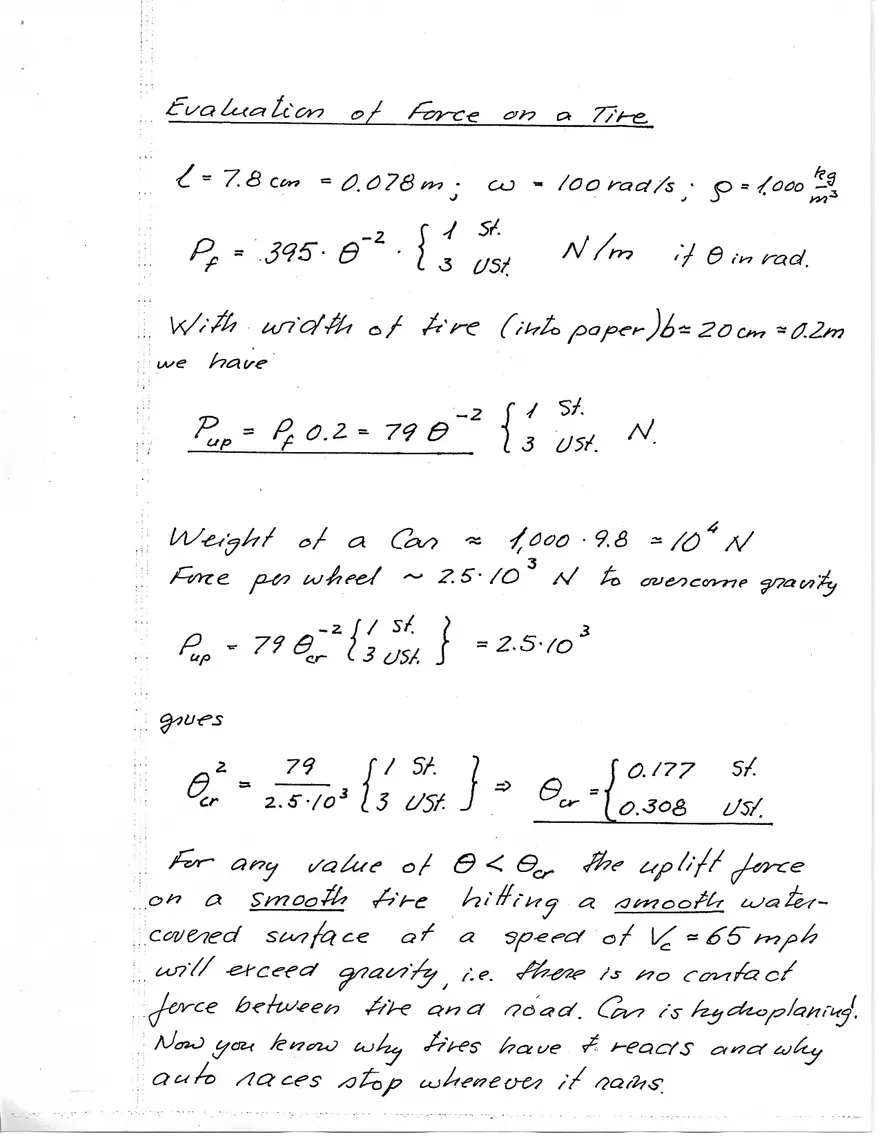 Evaluation of Force on a Tire
l = 7.8 cm = 0.078 m ; ω = 100 rad/s ; ρ = 1,000 kg/m³
P_f = 395 · θ⁻² · { 1 St. 3 USt. N/m if θ in rad.
With width of tire (into paper) b = 20 cm = 0.2m
we have
P_up = P_f 0.2 = 79 θ⁻² { 1 St. 3 USt. N.
Weight of a Car ≈ 1,000 · 9.8 ≈ 10⁴ N
Force per wheel ~ 2.5·10³ N to overcome gravity
P_up = 79 θ_cr⁻² { 1 St. 3 USt. } = 2.5·10³
gives
θ_cr² = 79 / 2.5·10³ { 1 St. 3 USt. } ⇒ θ_cr = { 0.177 St. 0.308 USt.
For any value of θ < θ_cr the uplift force
on a smooth tire hitting a smooth water-
covered surface at a speed of V_c = 65 mph
will exceed gravity, i.e. there is no contact
force between tire and road. Car is hydroplaning.
Now you know why tires have treads and why
auto races stop whenever it rains.